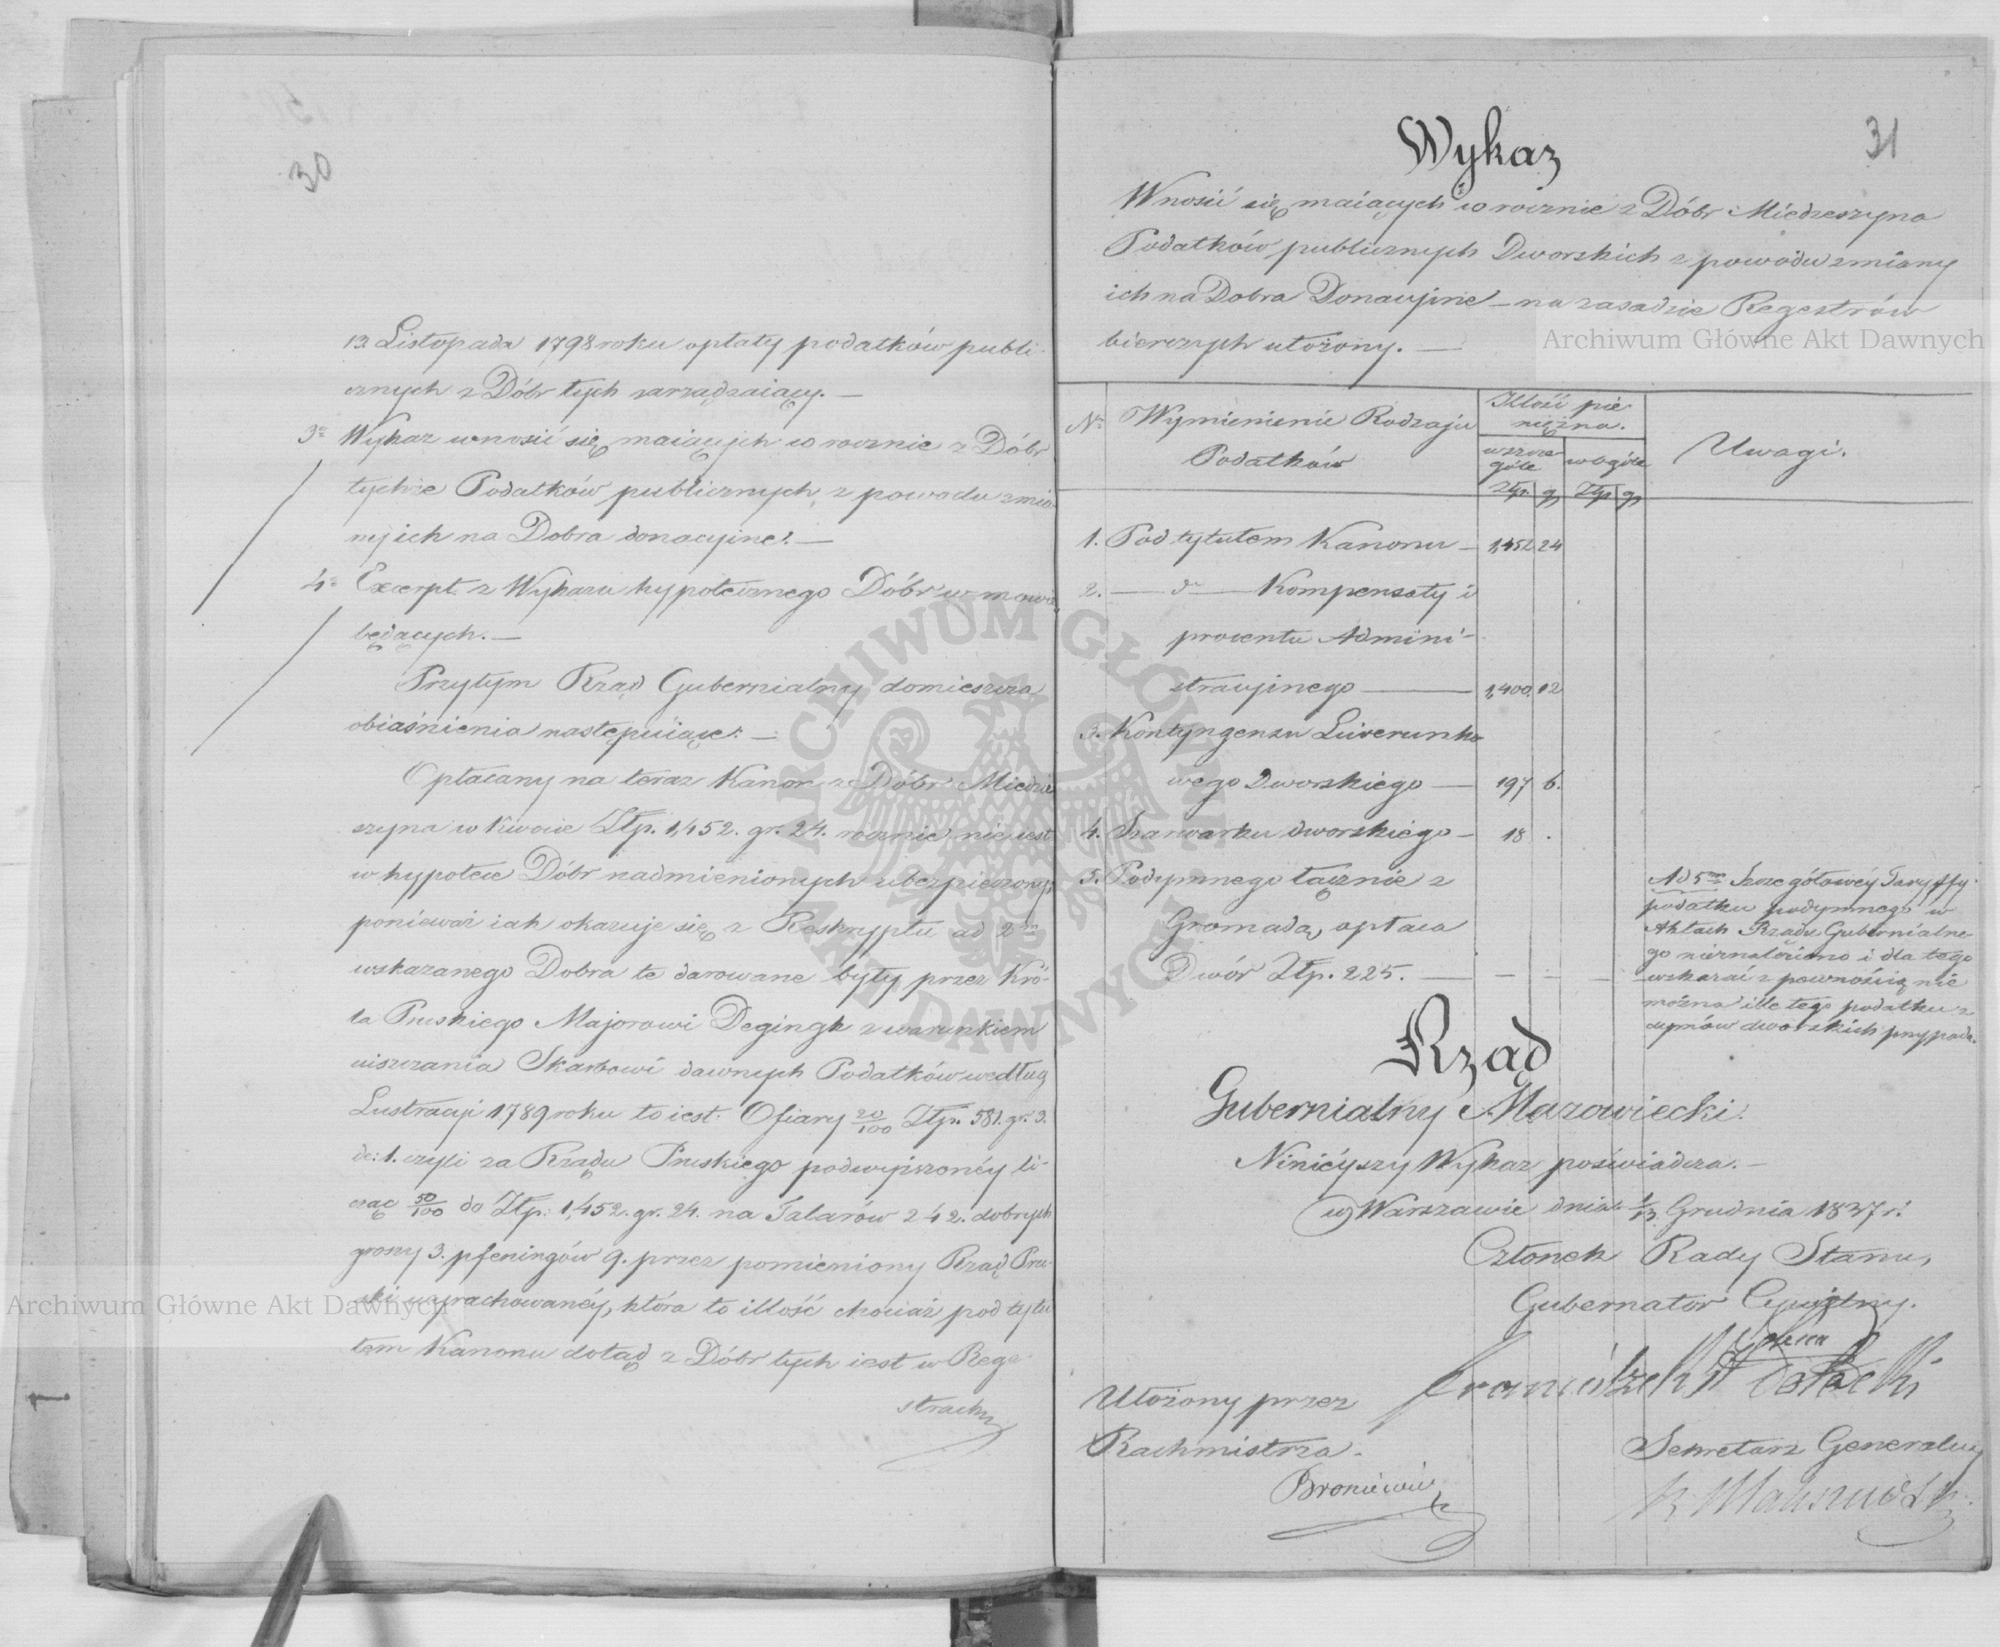 30
13 Listopada 1798 roku opłaty podatków publi-
cznych z Dóbr tych zarządzaiący. —
3e Wykaz wnosić się maiących co rocznie z Dóbr
tychże Podatków publicznych, z powodu zmia-
ny ich na Dobra donacyine. —
4e Excerpt z Wykazu hypotecznego Dóbr w mowie
będących. —
Przytym Rząd Gubernialny domieszcza
obiaśnienia następuiące: —
Opłacany na teraz Kanon z Dóbr Miedze
szyna w kwocie Złp. 1,452. gr. 24. rocznie nie iest
w hypotece Dóbr nadmienionych ubezpieczony,
ponieważ iak okazuje się z Reskryptu ad 2m
wskazanego Dobra te darowane były przez Kró-
la Pruskiego Majorowi Degingk z warunkiem
uiszczania Skarbowi dawnych Podatków według
Lustracyi 1789 roku to iest: Ofiary 20/100 Złp. 581. gr. 3.
de: 1. czyli za Rządu Pruskiego podwyższonéy li-
cząc 50/100 do Złp. 1,452. gr. 24. na Talarów 242. dobrych
groszy 3. pfeningów 9. przez pomieniony Rząd Pru-
ski wyrachowanéy, która to illość chociaż pod tytu
łem Kanonu dotąd z Dóbr tych iest w Rege-
strach
31
Wykaz
Wnosić się maiących co rocznie z Dóbr Miedzeszyna
Podatków publicznych Dworskich z powodu zmiany
ich na Dobra Donacyine — na zasadzie Regestrów
bierczych ułożony. —
No Wymienienie Rodzaju Podatków
Illość pie
niężna.
wszcze
góle
wogóle
Złp. gr Złp gr
Uwagi.
1. Pod tytułem Kanonu — 1,452 24
2. — do — Kompensaty i
procentu Admini-
stracyinego — 1,400 12
3. Kontyngensu Liwerunko
wego Dworskiego — 197 6.
4. Szarwarku dworskiégo — 18 .
5. Podymnego łącznie z
Gromadą, opłaca
Dwór Złp. 225. — — — — —
Ad 5m Szczegółowéy Taryffy
podatku podymnego w
Aktach Rządu Gubernialne-
go nieznaleziono i dla tego
wskazać z pewnością nie
można ille tego podatku z
dymów dworskich przypada.
Rząd
Gubernialny Mazowiecki.
Ninieyszy Wykaz poświadcza. —
w Warszawie dnia 1/13 Grudnia 1837 r.
Członek Rady Stanu,
Gubernator Cywilny.
Ułożony przez
Rachmistrza.
Broniewicz
Sekretarz Generalny
Archiwum Główne Akt Dawnych
Archiwum Główne Akt Dawnych
ARCHIWUM GŁÓWNE AKT DAWNYCH